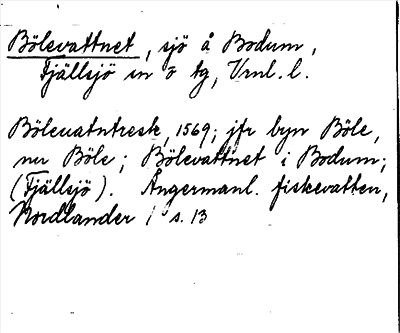 Bölevattnet, sjö å Bodum,
Fjällsjö sn o tg, Vrnl. l.
Böleuatntresk, 1569; jfr byn Böle,
nu Böle; Bölevattnet i Bodum;
(Fjällsjö). Ångermanl. fiskevatten,
Nordlander 1 s. 13